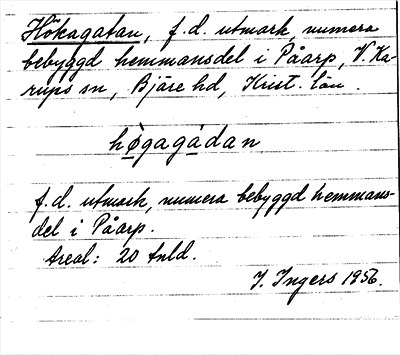 Hökagatan, f.d. utmark, numera
bebyggd hemmansdel i Påarp, V. Ka-
rups sn, Bjäre hd, Krist. län.
hǫ̀gagádan
f.d. utmark, numera bebyggd hemmans-
del i Påarp.
Areal: 20 tnld.
I. Ingers 1956.